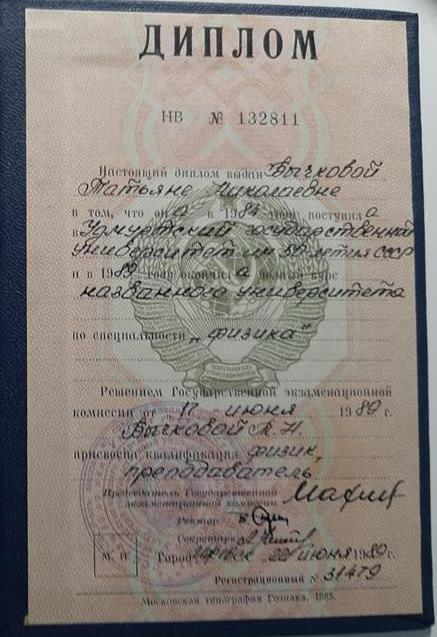 ДИПЛОМ
НВ № 132811
Настоящий диплом выдан Бычковой
Татьяне Николаевне
в том, что она в 1984 году поступила
в Удмуртский государственный
университет им 50-летия СССР
и в 1989 году окончила полный курс
названного университета
по специальности „физика“
Решением Государственной экзаменационной
комиссии от 17 июня 1989 г.
Бычковой Т. Н.
присвоена квалификация физик,
преподаватель
Председатель Государственной
экзаменационной комиссии
Ректор
Секретарь
М. П. Город июня 19 г.
Регистрационный № 31479
Московская типография Гознака. 1985.